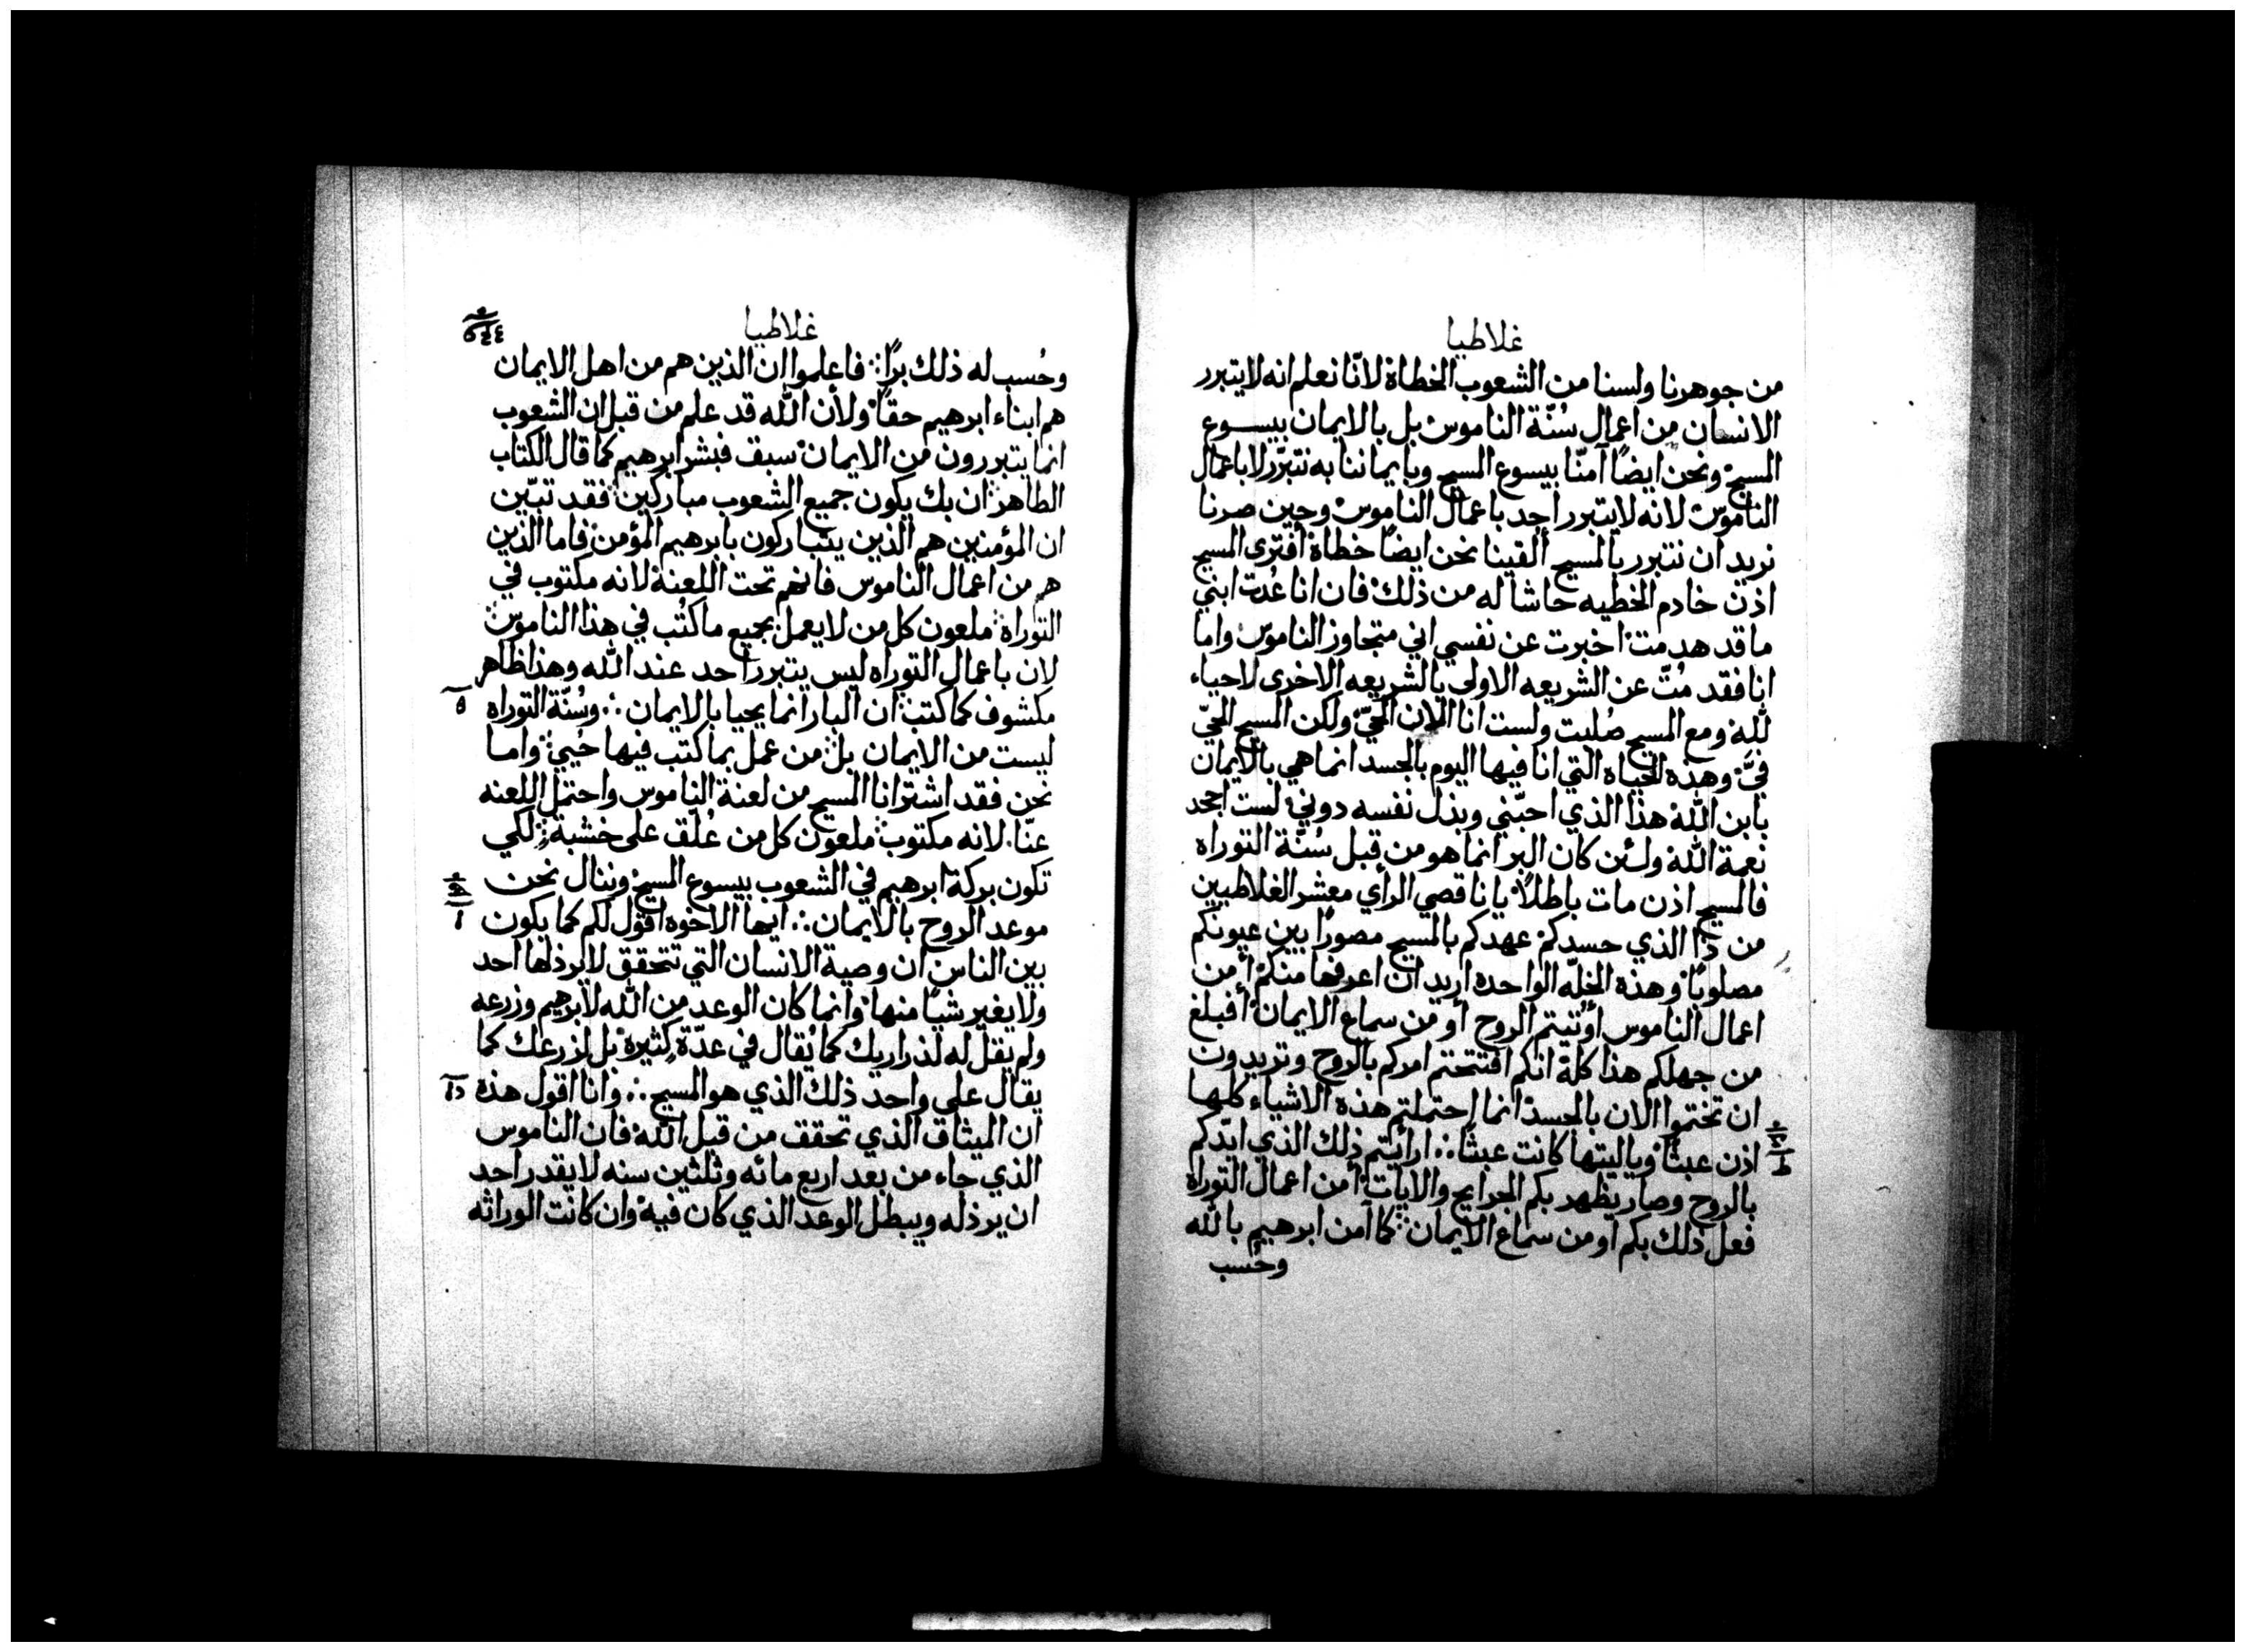 غلاطيا
من جوهرنا ولسنا من الشعوب الخطاة لانّا نعلم انه لا يتبرر
الانسان من اعمال سُنّة الناموس بل بالايمان بيسوع
المسيح ونحن ايضًا آمنّا بيسوع المسيح وبايماننا به نتبرّر لا باعمال
الناموس لانه لا يتبرر احد باعمال الناموس وحين صرنا
نريد ان نتبرر بالمسيح ألفينا نحن ايضًا خطاة أفترى المسيح
اذن خادم الخطيه حاشا له من ذلك فان انا عُدت ابني
ما قد هدمت اخبرت عن نفسي اني متجاوز الناموس واما
انا فقد مُتّ عن الشريعه الاولى بالشريعه الاخرى لاحياء
لله ومع المسيح صُلبت ولست انا الان الحيّ ولكن المسيح الحيّ
فيَّ وهذه الحياه التي انا فيها اليوم بالجسد انما هي بالايمان
بابن الله هذا الذي احبّني وبذل نفسه دوني لست اجحد
نعمة الله ولئن كان البر انما هو من قبل سُنّة التوراه
فالمسيح اذن مات باطلاً يا ناقصي الرأي معشر الغلاطيين
من ذا الذي حسدكم عهدكم بالمسيح مصورًا بين عيونكم
مصلوبًا وهذه الخلّه الواحده اريد ان اعرفها منكم أمن
اعمال الناموس أوتيتم الروح أو من سماع الايمان أفبلغ
من جهلكم هذا كلة انكم افتتحتم امركم بالروح وتريدون
ان تختموا الان بالجسد انما احتملتم هذه الاشياء كلها
اذن عبثًا وياليتها كانت عبثًا ∴ ارايتم ذلك الذي ايّدكم
بالروح وصار يظهر بكم الجرايح والايات أمن اعمال التوراه
فعل ذلك بكم او من سماع الايمان كما آمن ابرهيم بالله
وحُسب
غلاطيا
وحُسب له ذلك برًا فاعلموا ان الذين هم من اهل الايمان
هم ابناء ابرهيم حقًا ولأن الله قد علم من قبل ان الشعوب
انما يتبررون من الايمان سبق فبشر ابرهيم كما قال الكتاب
الطاهر ان بك يكون جميع الشعوب مباركين فقد تبّين
ان المؤمنين هم الذين يتباركون بابرهيم المؤمن فاما الذين
هم من اعمال الناموس فانهم تحت اللعنة لانه مكتوب في
التوراة ملعون كل من لا يعمل بجميع ما كتُب في هذا الناموس
لان باعمال التوراه ليس يتبرر احد عند الله وهذا ظاهر
مكشوف كما كتب ان البار انما يحيا بالايمان ∴ وسُنّة التوراه
ليست من الايمان بل من عمل بما كتب فيها حُيي واما
نحن فقد اشترانا المسيح من لعنة الناموس واحتمل اللعنه
عنّا لانه مكتوب ملعون كل من عُلّق على خشبة لكي
تكون بركة ابرهيم في الشعوب بيسوع المسيح وننال نحن
موعد الروح بالايمان ∴ ايها الاخوه اقول لكم كما يكون
بين الناس ان وصية الانسان التي تتحقق لا يرذلها احد
ولا يغير شيًا منها وانما كان الوعد من الله لابرهيم وزرعه
ولم يقل له لذراريك كما يُقال في عدّة كثيرة بل لزرعك كما
يقال على واحد ذلك الذي هو المسيح ∴ وانا اقول هذه
ان الميثاق الذي تحقق من قبل الله فان الناموس
الذي جاء من بعد اربع مائه وثلثين سنه لا يقدر احد
ان يرذله ويبطل الوعد الذي كان فيه وان كانت الوراثه